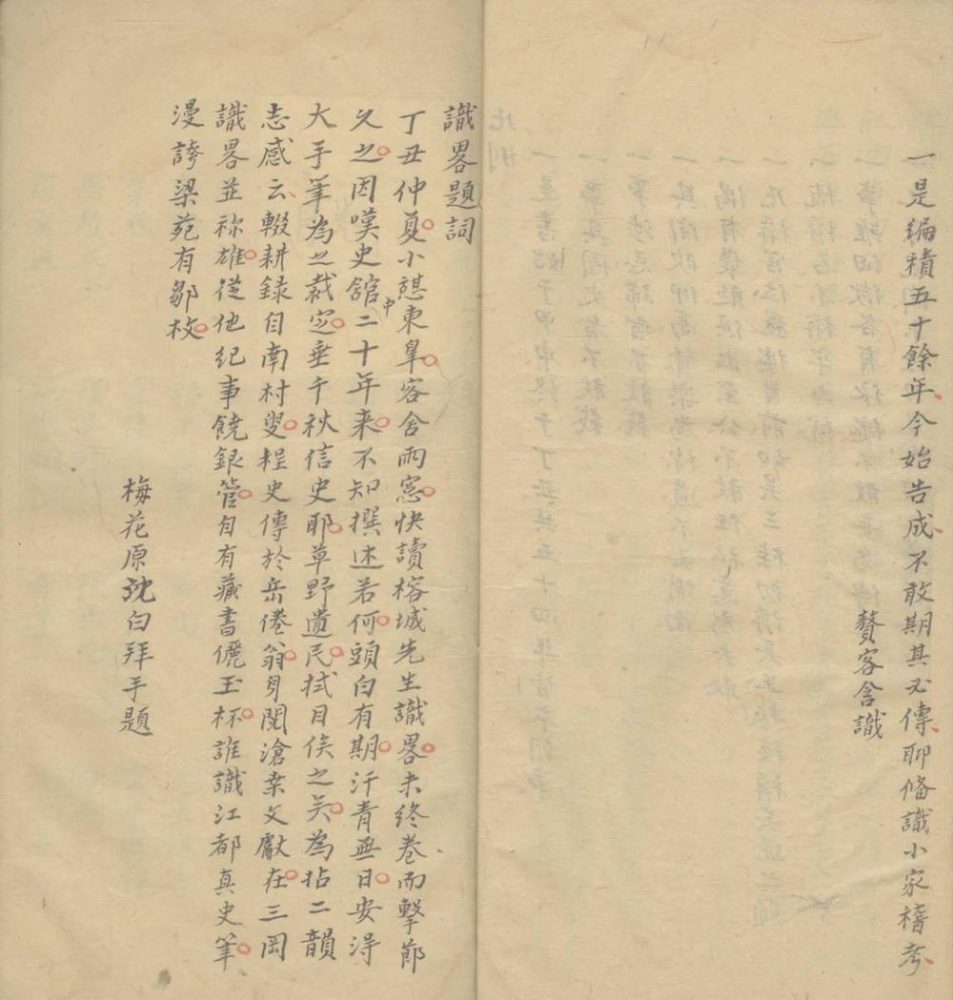 一是編積五十餘年今始告成不敢期其必傳聊備識小家稽考
贅客舍識
識畧題詞
丁丑仲夏小憩東臯客舍雨窓快讀榕城先生識畧未終卷而擊節
久之因嘆史館中二十年来不知撰述若何頭白有期汗青無日安得
大手筆為之裁定垂千秋信史耶草野遺民拭目俟之矣為拈二韻
志感云輟耕録自南村叟桯史傳於岳倦翁身閲滄桑文獻在三岡
識畧並称雄從他紀事饒銀管自有藏書儷玉杯誰識江都真史筆
漫誇梁苑有鄒枚
梅花原沈白拜手題